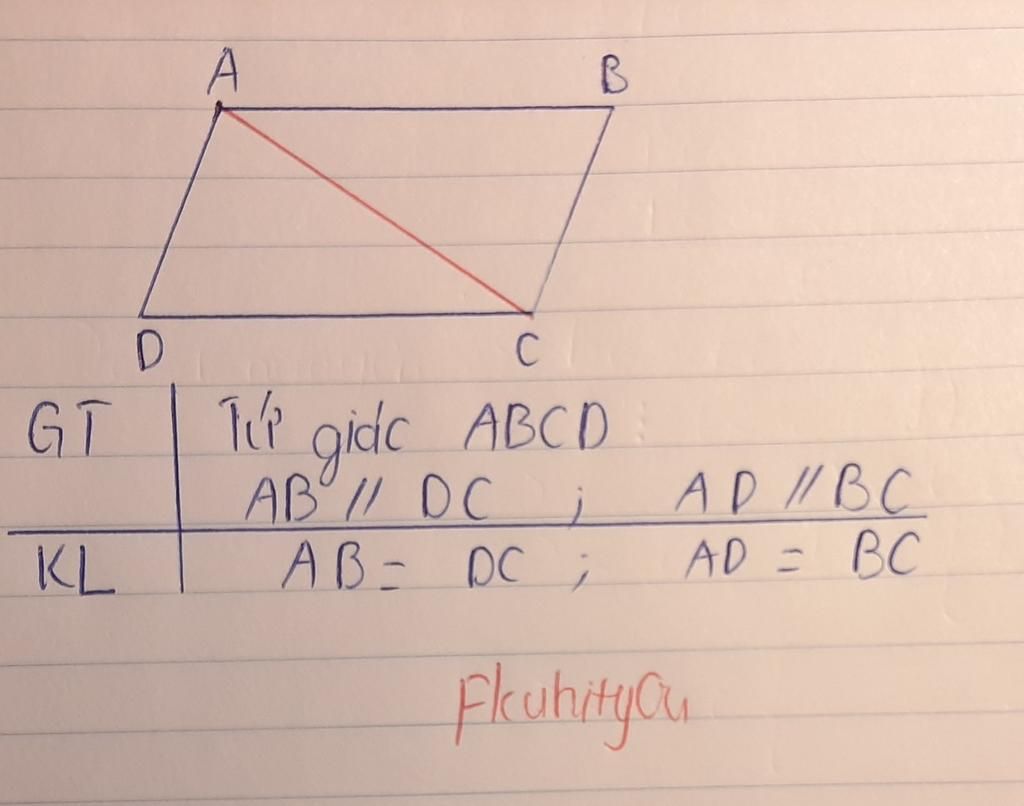 A B
D C
GT Tứ giác ABCD
AB // DC ; AD // BC
KL AB = DC ; AD = BC
FkuhityOu